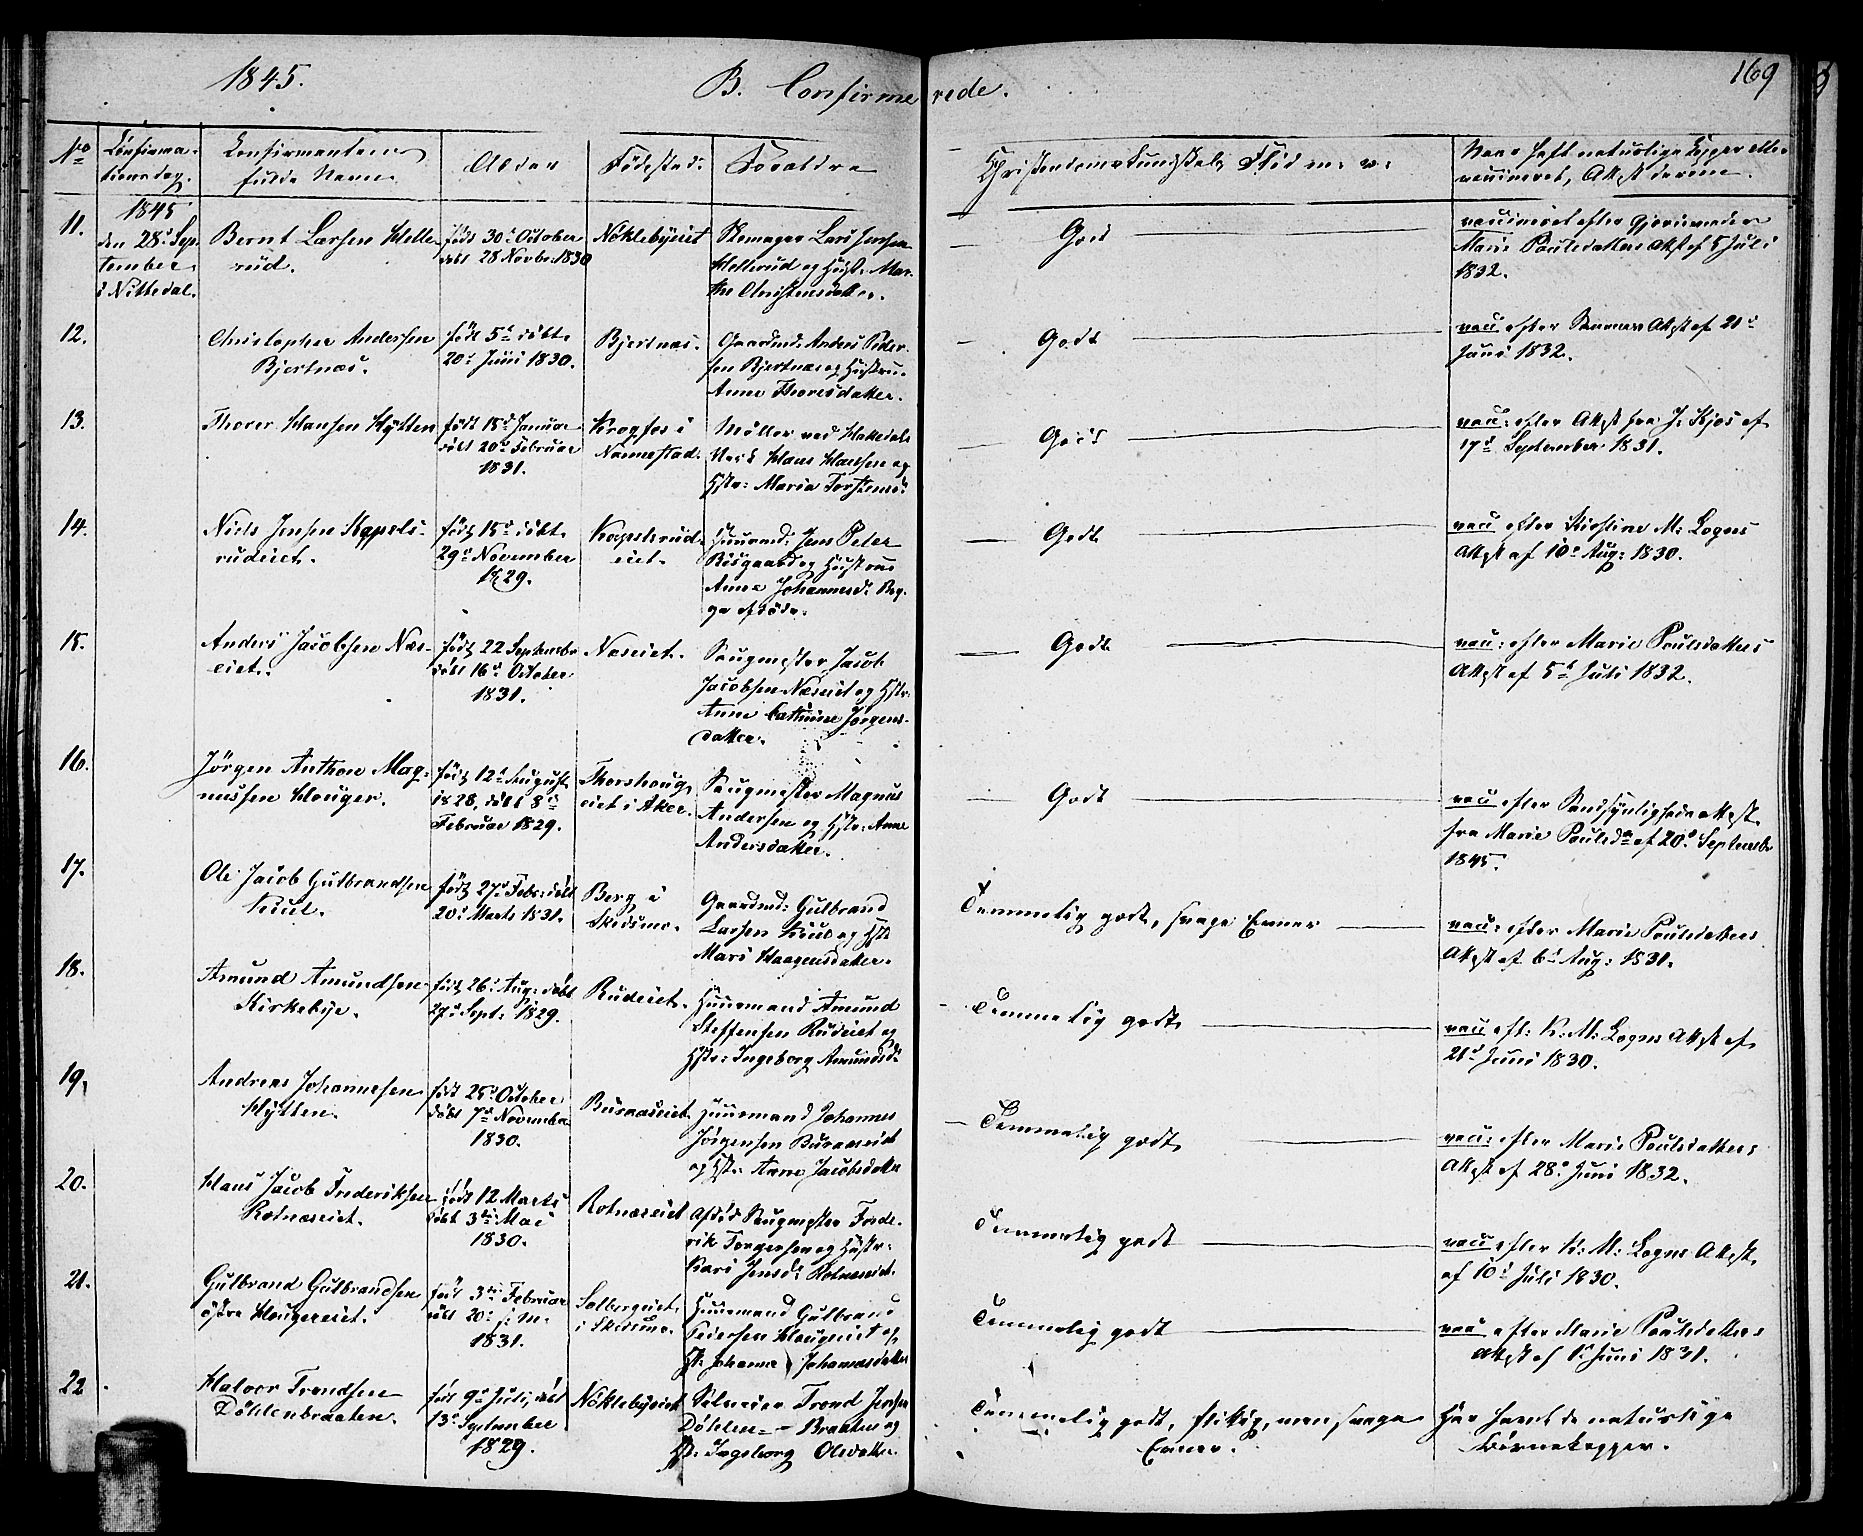 1845. B. Confirmerede. 169
No
Confirma-
tionsdag.
Confirmantens
fulde Navn.
Alder
Födested.
Forældre
Christendomskundskab, Flid m: v:
Naar haft naturlige Kopper eller
vaccineret, Attest derom.
11.
1845
den 28d Sep-
tember
i Nittedal.
Bernt Larsen Helle-
rud.
födt 30d October
döbt 28 Novbr. 1830
Nöklebyeiet
Skomager Lars Jensen
Hellerud og Hustr: Mar-
the Christensdatter.
Godt
vaccineret efter Gjordemoder
Marie Poulsdatters Attest af 5 Juli
1832.
12.
Christopher Andersen
Bjertnæs.
födt 5d döbt
20d Juni 1830.
Bjertnæs.
Gaardmd: Anders Peder-
sen Bjertnæs og Hustrue
Anne Thoresdatter.
Godt
vacc efter Attest af 21d
Juni 1832.
13.
Thorer Hansen Hytten
födt 15d Januar
döbt 20d Februar
1831.
Krogfos i
Nannestad.
Möller ved Hakedals
Værk Hans Hansen og
Hstr: Maria Torstensd:
Godt
vacc: efter Attest fra J. Kjos af
17d September 1831.
14.
Niels Jensen Kapels-
rudeiet.
födt 15d döbt
29d November
1829.
Kapelsrud-
eiet.
Huusmd: Jens Peter
Bisgaard og Hustrue
Anne Johannesd: Beg-
ge afdöde.
Godt
vacc efter Kirstine M: Logns
Attest af 10d Aug: 1830.
15.
Anders Jacobsen Næs-
eiet.
födt 22 Septembr
döbt 16d October
1831.
Næseiet.
Saugmester Jacob
Jacobsen Næseiet og Hstr:
Anne Cathrine Jörgens-
datter.
Godt
vacc: efter Marie Poulsdatters
Attest af 5d Juli 1832.
16.
Jörgen Anthon Mag-
nussen Hauger.
födt 12d August
1828, döbt 8d
Februar 1829.
Thorshoug-
eiet i Aker.
Saugmester Magnus
Andersen og Hstr: Anne
Andersdatter.
Godt
vacc efter Sandsynlighedsattest
fra Marie Poulsdr af 20d Septembr
1845.
17.
Ole Jacob Gulbrandsen
Kruul.
födt 27d Febr: döbt
20d Marts 1831.
Berg i
Skedsmo.
Gaardmd: Gulbrand
Larsen Kruul og Hstr
Mari Haagensdatter.
Temmelig godt, svage Evner
vacc: efter Marie Poulsdatters
Attest af 6d Aug: 1831.
18.
Amund Amundsen
Kirkebye.
födt 26d Aug: döbt
27d Sept: 1829.
Rudeiet.
Huusmand Amund
Steffensen Rudeiet og
Hstr: Ingeborg Amundsd:
Temmelig godt
vacc eft: K: M: Logns Attest af
21d Juni 1830.
19.
Andreas Johannesen
Hytten.
födt 25d October
döbt 7d November
1830.
Buraaseiet
Huusmand Johannes
Jörgensen Buraaseiet
og Hstr: Anne Jacobsdatter
Temmelig godt
vacc: efter Marie Poulsdatters
Attest af 28d Juni 1832.
20.
Hans Jacob Frederiksen
Rotnæseiet.
födt 12 Marts
döbt 3die Mai
1830.
Rotnæseiet
Afdöd Saugmester Frede-
rik Torgersen og Hustr:
Kari Jensdr Rotnæseiet.
Temmelig godt
vacc efter K: M: Logns Attest
af 10d Juli 1830.
21.
Gulbrand Gulbrandsen
östre Haugereiet.
födt 3die Februar
döbt 20d s: m:
1831.
Solbergeiet
i Skedsmo.
Huusmand Gulbrand
Pedersen Haugeeiet og
Hstr: Johanne Johannesdatter
Temmelig godt
vacc efter Marie Poulsdatters
Attest af 1d Juni 1831.
22.
Halvor Trondsen
Döhlenbraaten.
födt 9d Juli, döbt
13d September
1829.
Nöklebyeiet
Trond Jensen
Döhlen-Braaten og
Hstr: Ingeborg Olsdatter.
Temmelig godt, flittig, men svage
Evner.
Har havt de naturlige
Börnekopper.